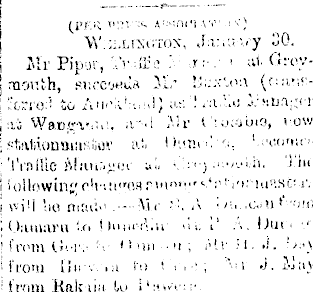 (PER PRESS ASSOCIATION)
WELLINGTON, January 30.
Mr Piper, Traffic Manager at Grey-
mouth, succeeds Mr Buxton (trans-
ferred to Auckland) as Traffic Manager
at Wanganui, and Mr Crombie, now
stationmaster at Dunedin, becomes
Traffic Manager at Greymouth. The
following changes among stationmasters
will be made:—Mr A. Duncan from
Oamaru to Dunedin; Mr P. A.
from Gore to Mr H. J. Day
from Hawera to Gore; Mr J. May
from Rakaia to Hawera.